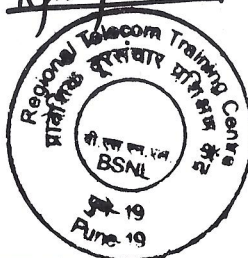 Regional Telecom Training Centre
प्रादेशिक दूरसंचार प्रशिक्षण केंद्र
बी एस एन एल
BSNL
पुणे-19
Pune-19